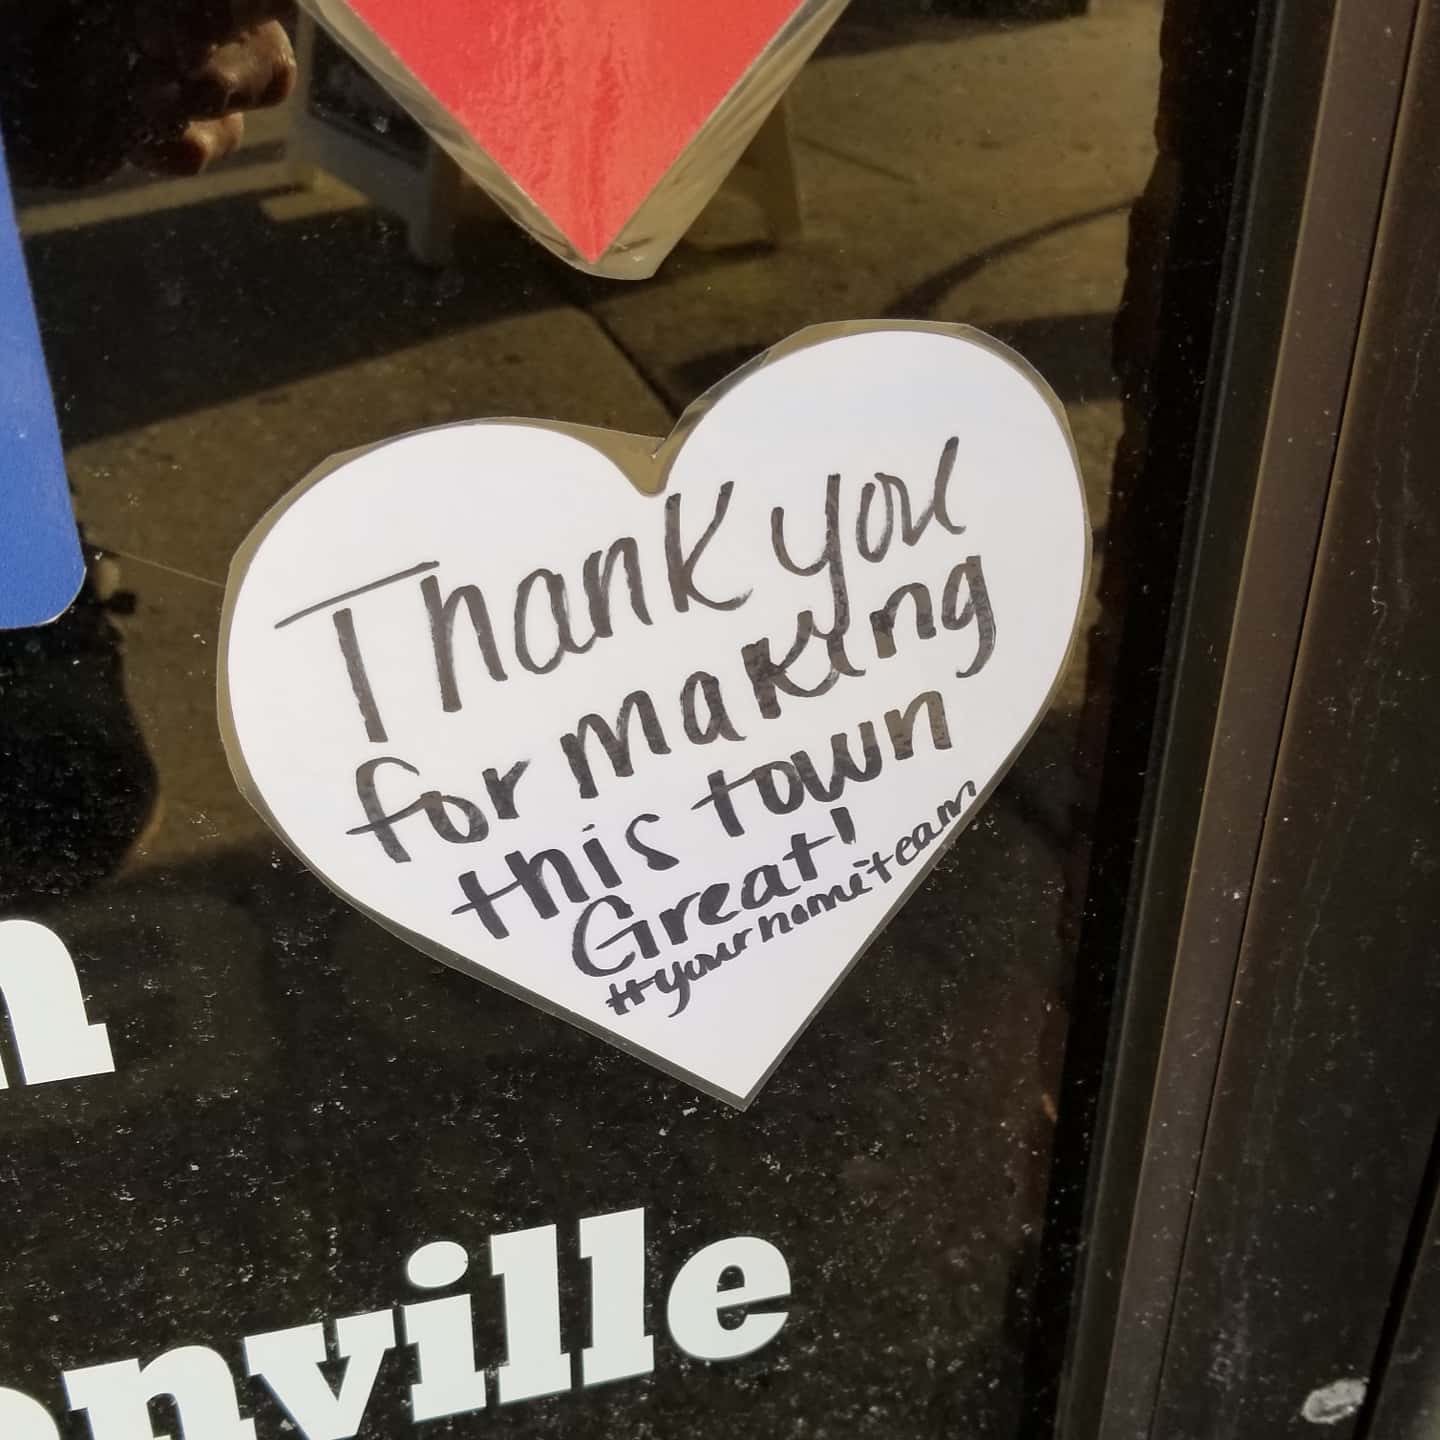 Thank you
for making
this town
Great!
#yourhometeam